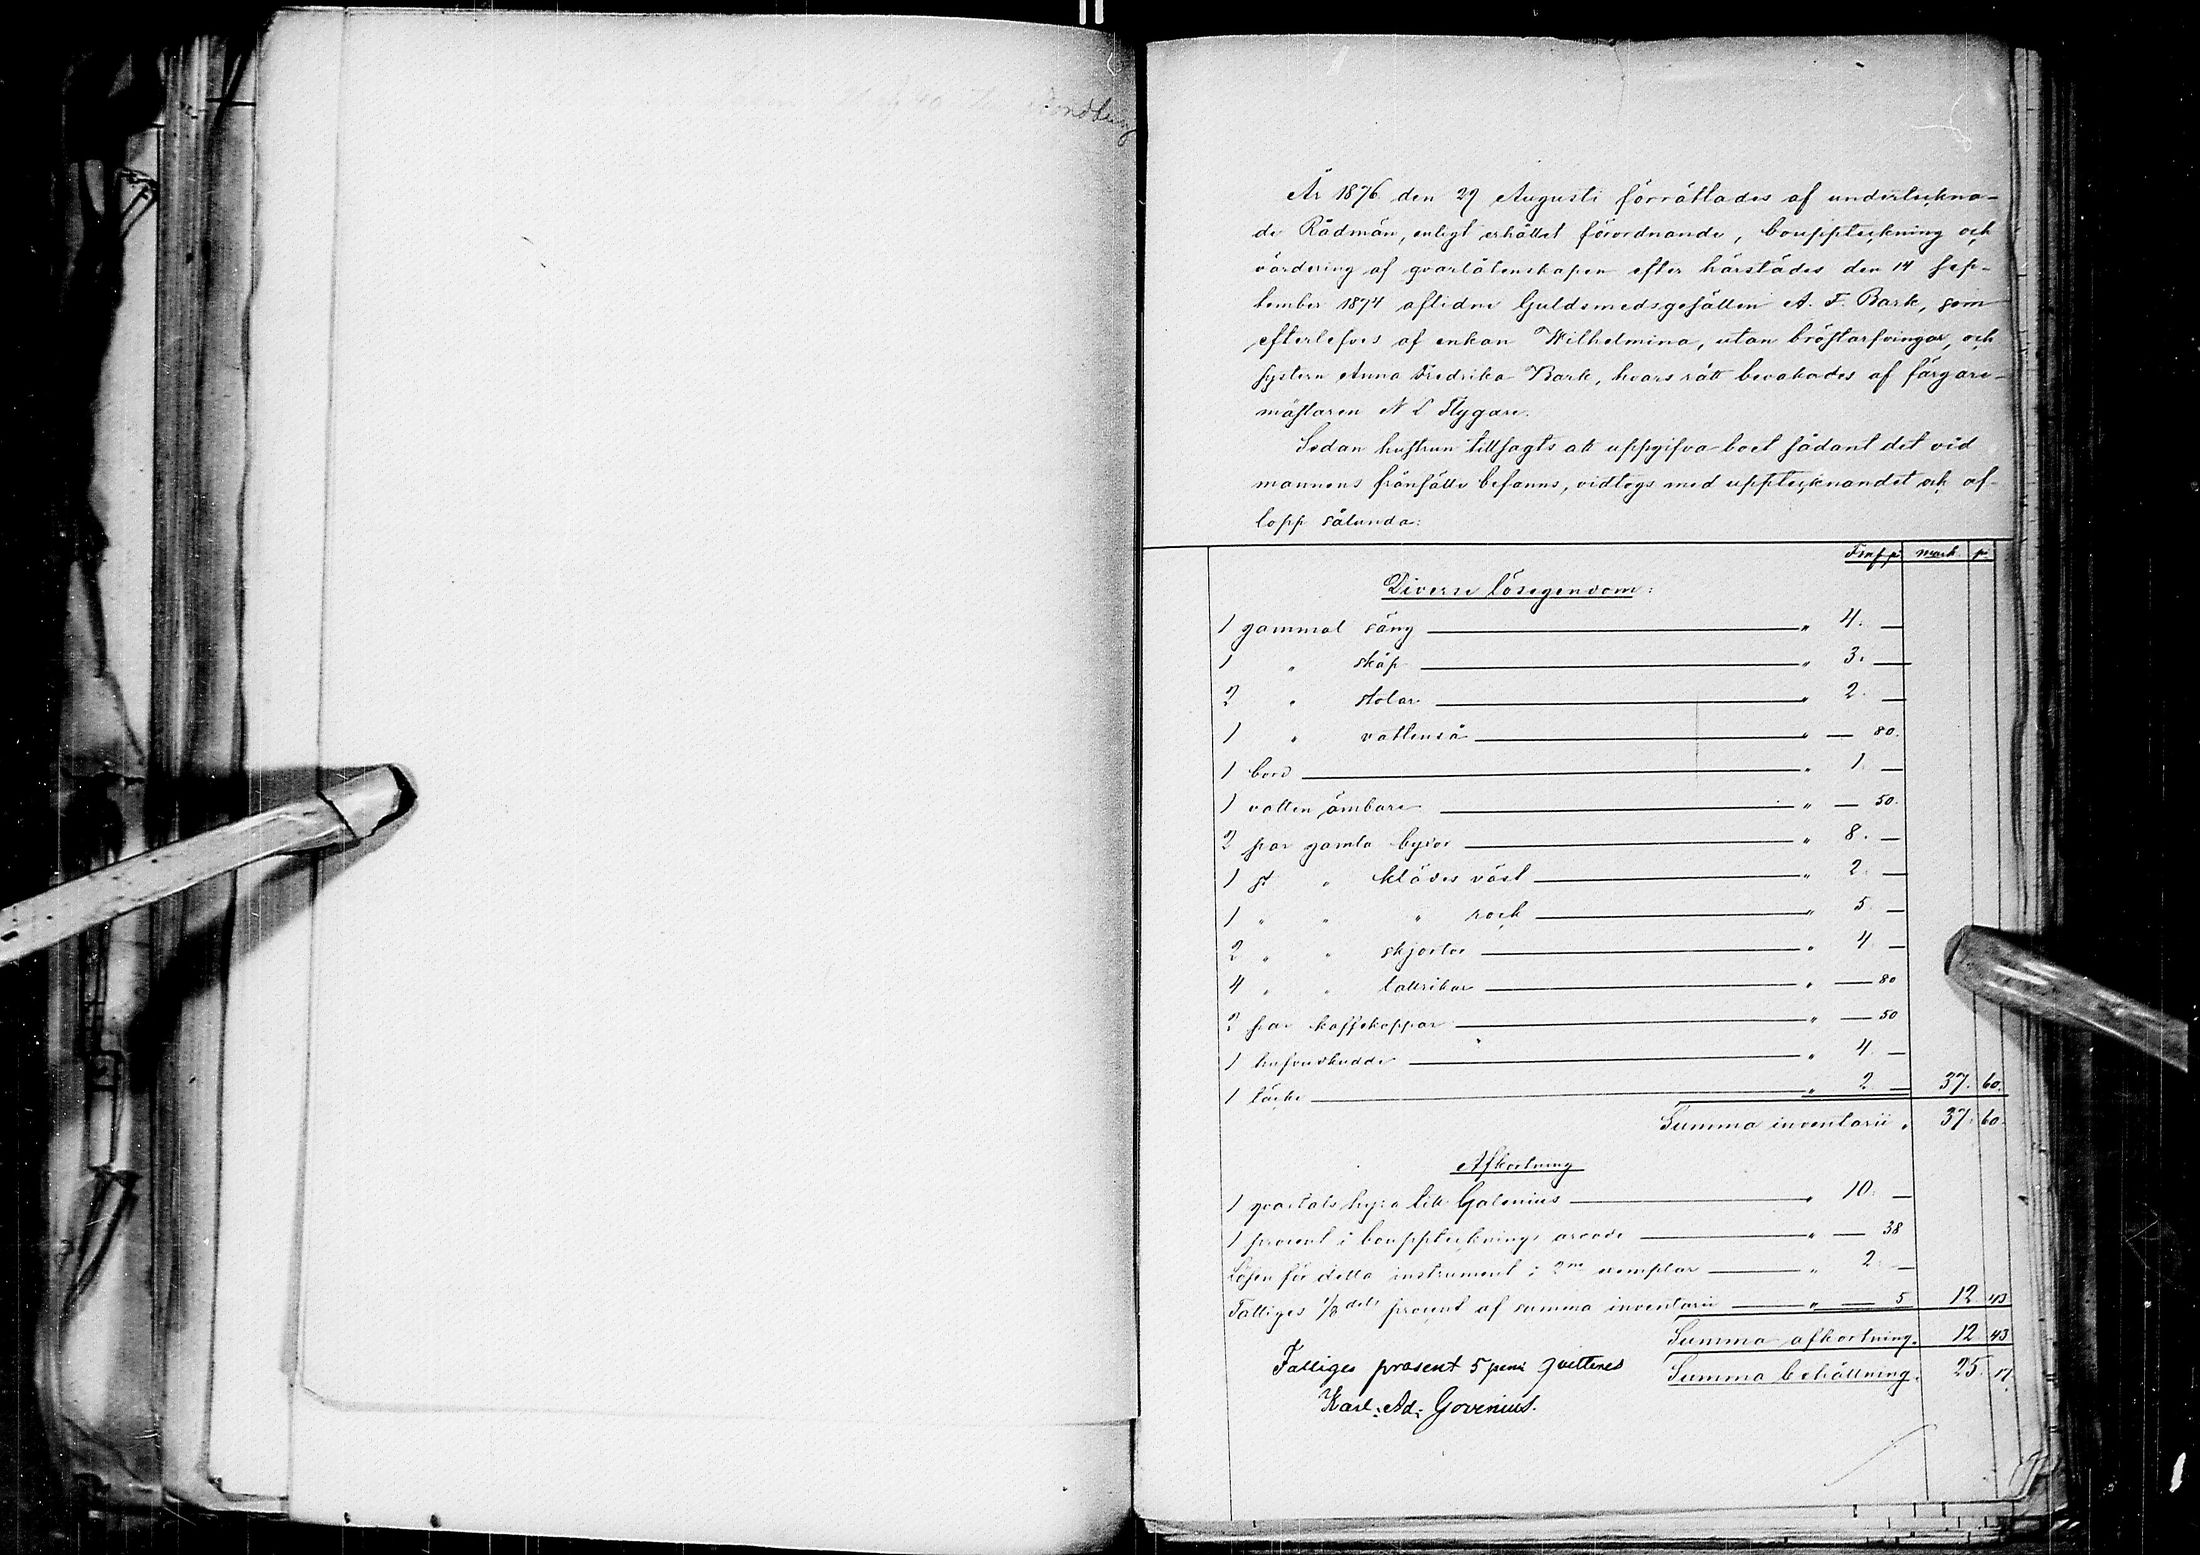 År 1876 den 27 Augusti förrättades af underteckna-
de Rådmän, enligt erhållet förordnande, bouppteckning och
värdering af qvarlåtenskapen efter härstädes den 14 Sep-
tember 1874 aflidne Guldsmedsgesällen A. F. Bark, som
efterlefves af enkan Wilhelmina, utan bröstarfvingar, och
systern Anna Fredrika Bark, hvars rätt bevakades af färgare-
mästaren N L Flygare.
Sedan hustrun tillsagts att uppgifva boet sådant det vid
mannens frånfälle befanns, vidtogs med upptecknandet och af-
lopp sålunda:
Fmf p. mark p.
Diverse lösegendom:
1 gammal säng " 4. —
1 " skåp " 3. —
2 " stolar " 2. —
1 " vattenså " — 80.
1 bord " 1. —
1 vatten ämbare " — 50.
2 par gamla byxor " 8. —
1 st " klädes väst " 2. —
1 " " " rock " 5 —
2 " " skjortor " 4 —
4 " " tallrikar " — 80
2 par kaffekoppar " — 50
1 hufvudkudde " 4. —
1 täcke " 2 — 37. 60.
Summa inventarii " 37. 60.
Afkortning
1 qvartals hyra till Galenius " 10. —
1 procent i bouppteckningsarvode " — 38
Lösen för detta instrument i 2ne exemplar " 2. —
Fattiges 1/8 dels procent af summa inventarii " — 5 12 43
Summa afkortning. 12 43
Fattiges prosent 5 peni qvitteres Summa behållning. 25. 17.
Karl. Ad. Govenius.